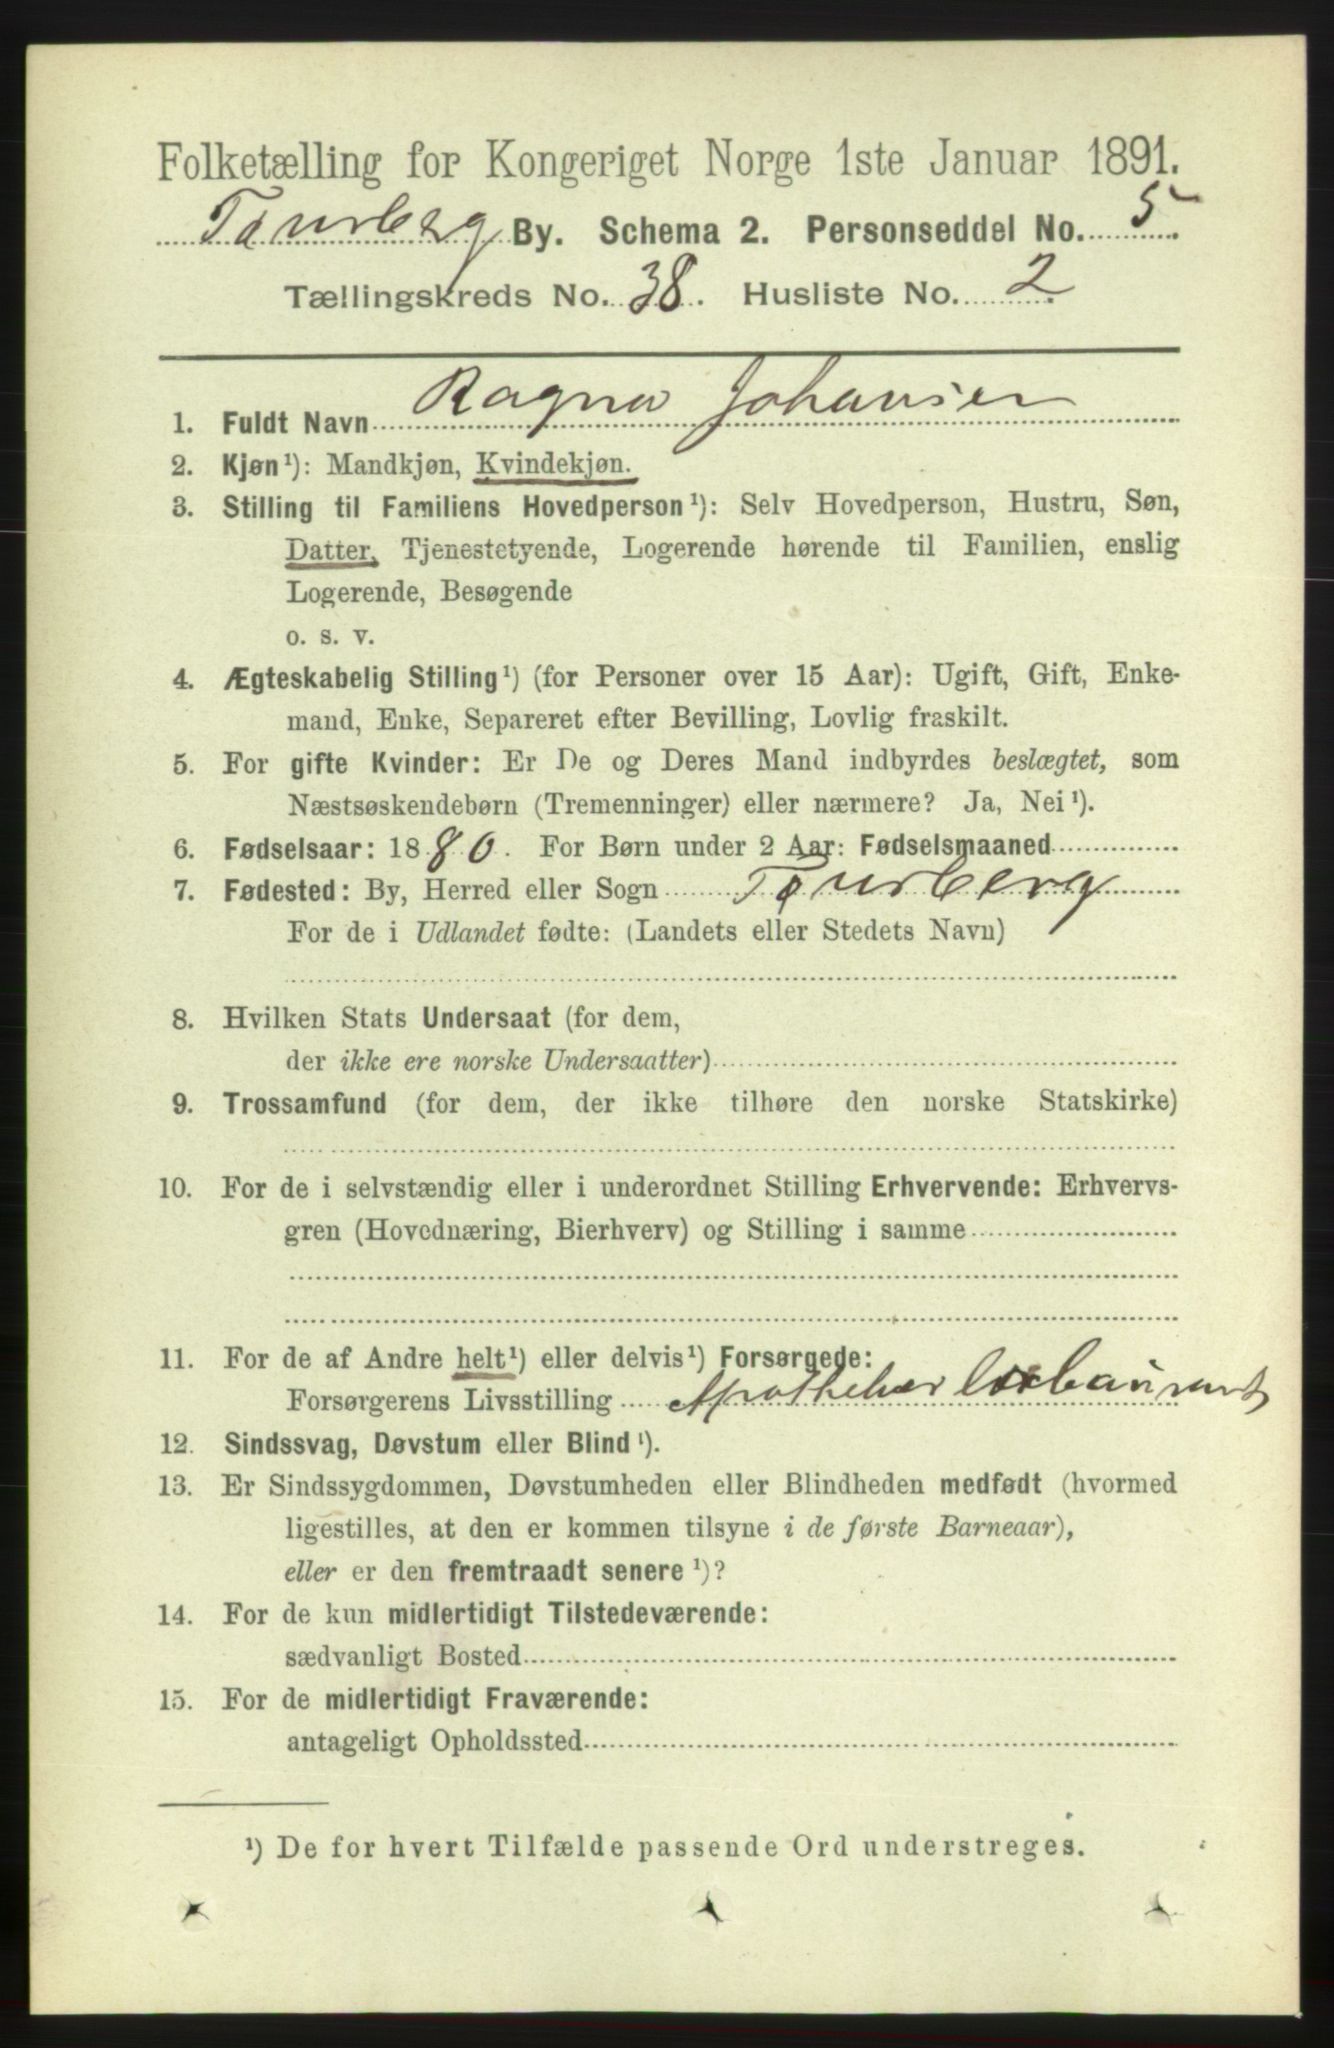 Folketælling for Kongeriget Norge 1ste Januar 1891.
Tønsberg By. Schema 2. Personseddel No. 5.
Tællingskreds No. 38. Husliste No. 2.
1. Fuldt Navn Ragna Johansen
2. Kjøn¹): Mandkjøn, Kvindekjøn.
3. Stilling til Familiens Hovedperson¹): Selv Hovedperson, Hustru, Søn,
Datter, Tjenestetyende, Logerende hørende til Familien, enslig
Logerende, Besøgende
o. s. v.
4. Ægteskabelig Stilling¹) (for Personer over 15 Aar): Ugift, Gift, Enke-
mand, Enke, Separeret efter Bevilling, Lovlig fraskilt.
5. For gifte Kvinder: Er De og Deres Mand indbyrdes beslægtet, som
Næstsøskendebørn (Tremenninger) eller nærmere? Ja, Nei¹).
6. Fødselsaar: 1880. For Børn under 2 Aar: Fødselsmaaned
7. Fødested: By, Herred eller Sogn Tønsberg
For de i Udlandet fødte: (Landets eller Stedets Navn)
8. Hvilken Stats Undersaat (for dem,
der ikke ere norske Undersaatter)
9. Trossamfund (for dem, der ikke tilhøre den norske Statskirke)
10. For de i selvstændig eller i underordnet Stilling Erhvervende: Erhvervs-
gren (Hovednæring, Bierhverv) og Stilling i samme
11. For de af Andre helt¹) eller delvis¹) Forsørgede:
Forsørgerens Livsstilling Apotheker
12. Sindssvag, Døvstum eller Blind¹).
13. Er Sindssygdommen, Døvstumheden eller Blindheden medfødt (hvormed
ligestilles, at den er kommen tilsyne i de første Barneaar),
eller er den fremtraadt senere¹)?
14. For de kun midlertidigt Tilstedeværende:
sædvanligt Bosted
15. For de midlertidigt Fraværende:
antageligt Opholdssted
¹) De for hvert Tilfælde passende Ord understreges.